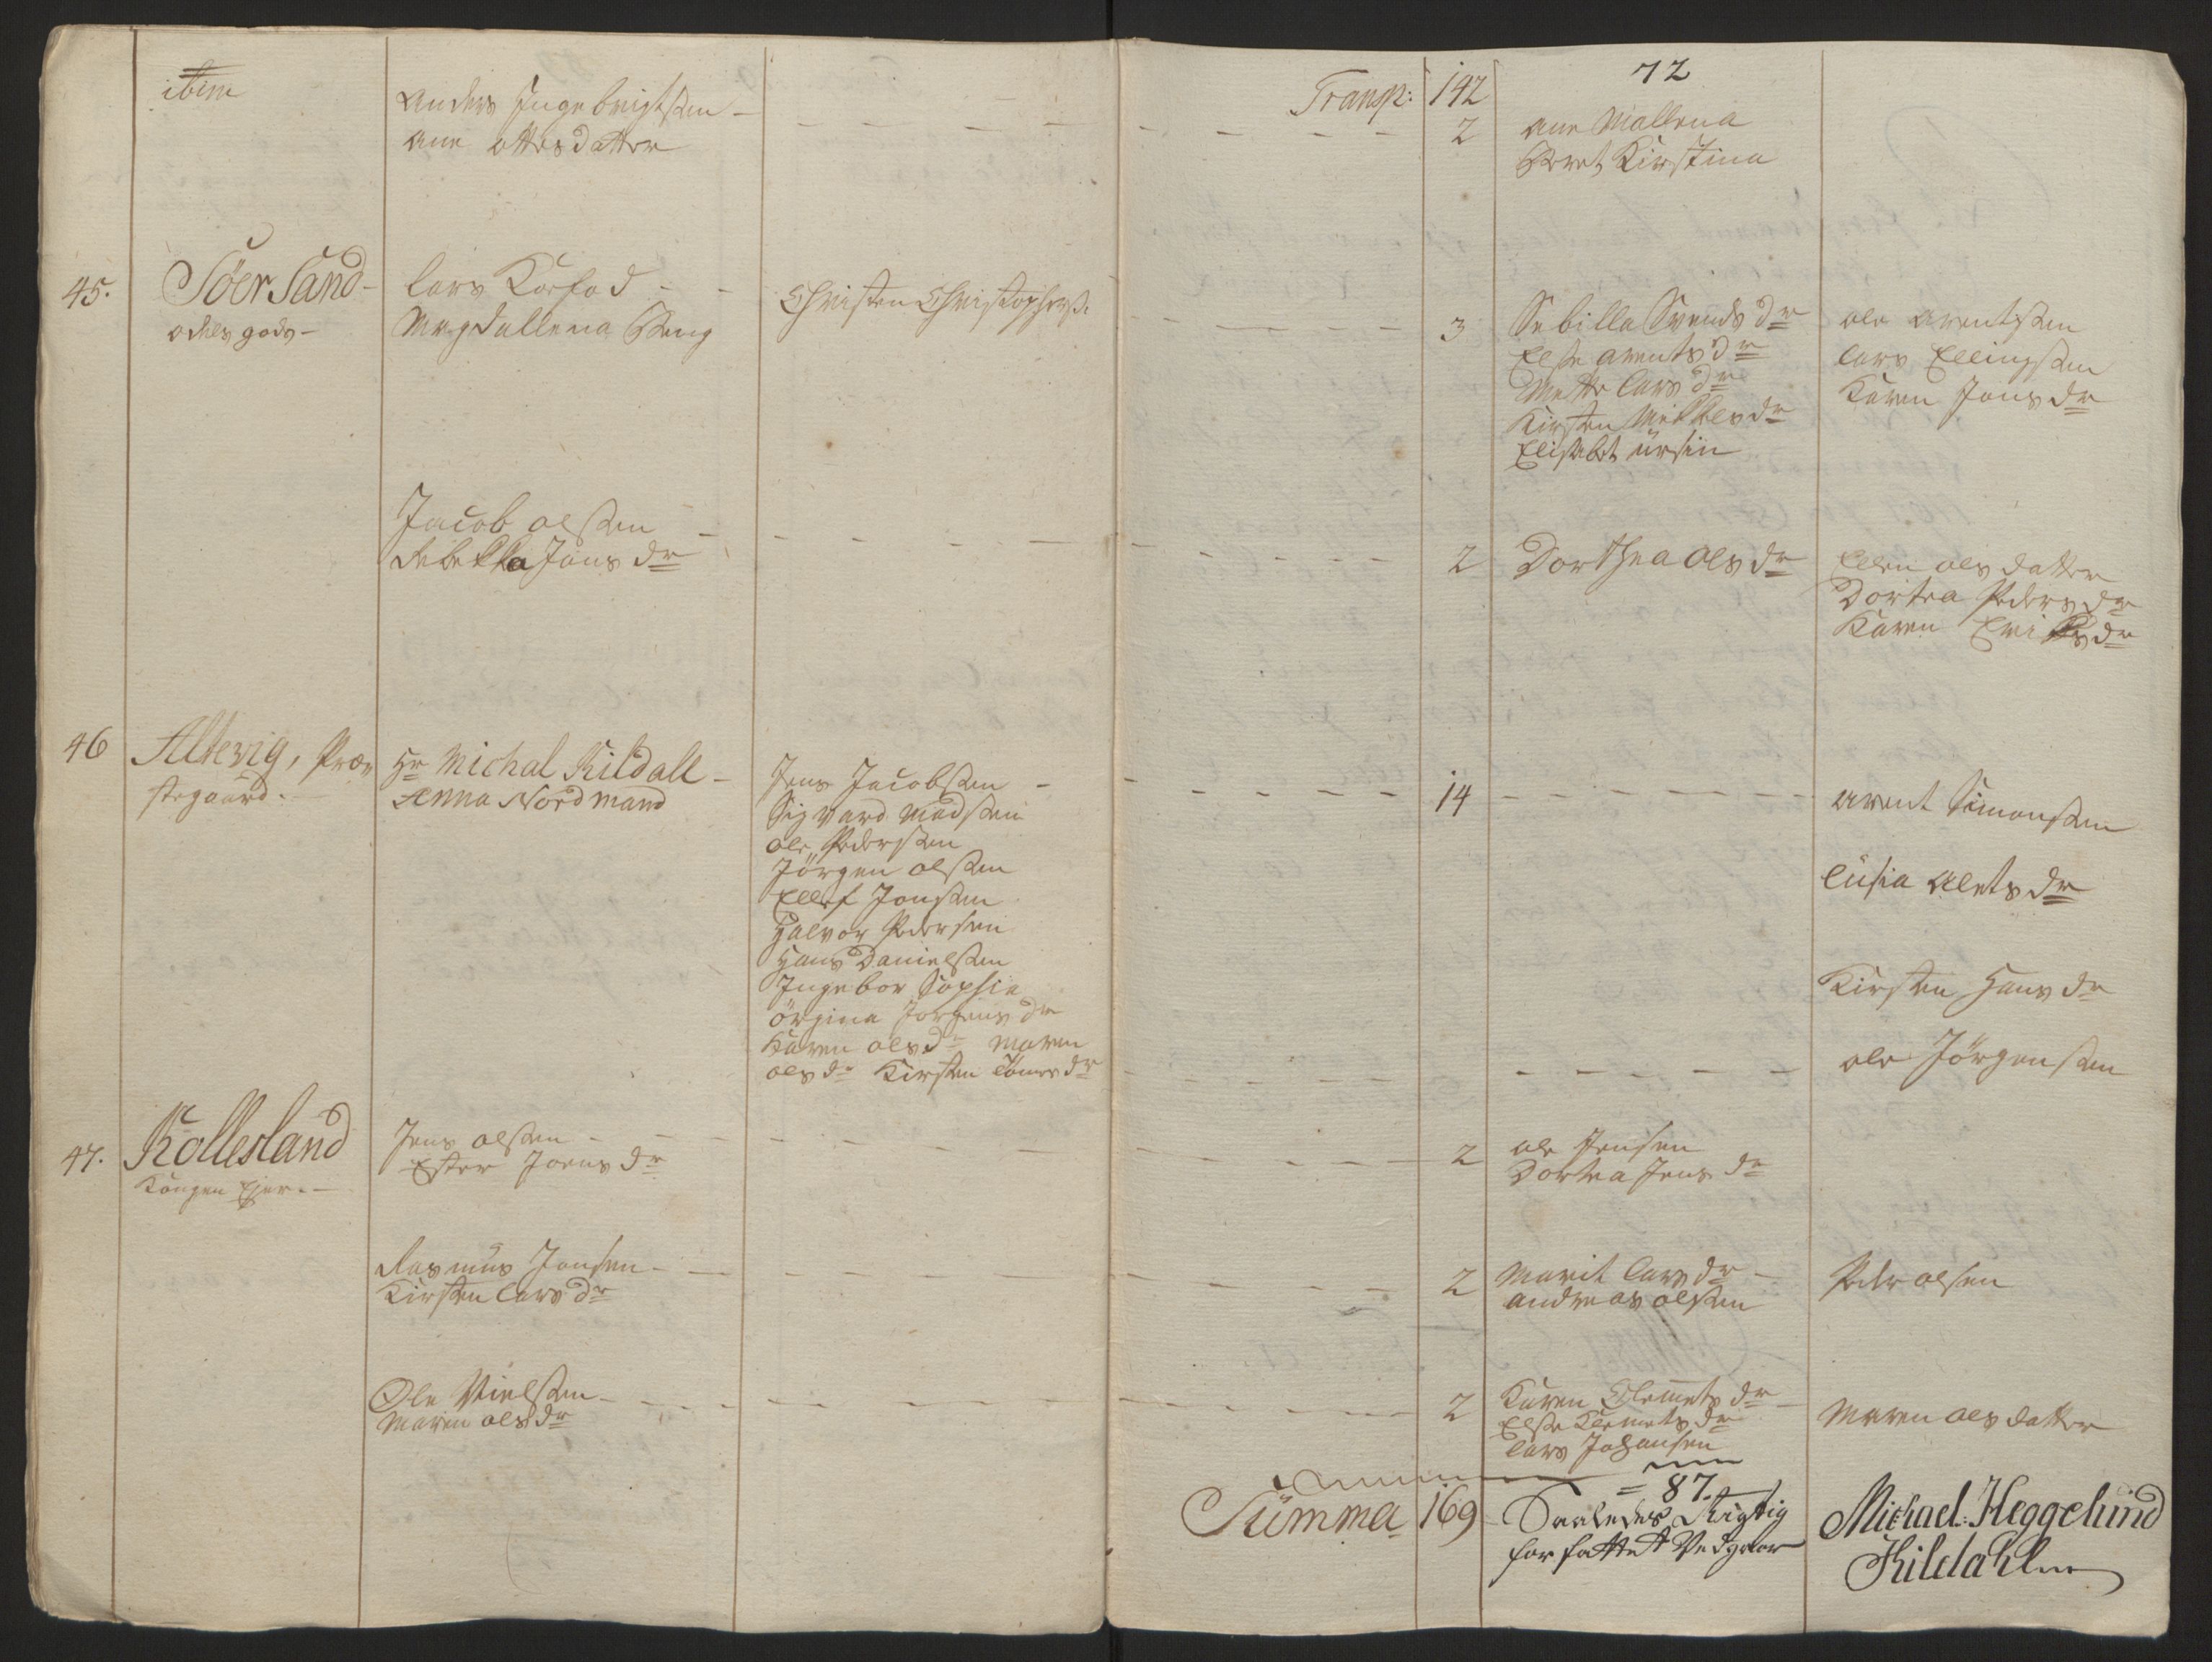 ibim
Anders Ingebrigtsen -
Ane Ottesdatter
Transp: 142
72
2
Ane Mallena
Beret Kirstina
45.
Söer Sand -
odels gods -
Lars Korfod -
Magdallena Beng
Christen Christophers:
3
Sebilla Svends dr
Else Arents dr
Mette Lars dr
Kirsten Mikkels dr
Elisabet Ursin
ole Arentsen
Lars Ellingsen
Karen Jons dr
Jacob olsen
Rebekka Jons dr
2
Dorthea Ols dr
Ellen ols datter
Dortea Peders dr
Karen Eriks dr
46
Altevig, Præ-
stegaard.
Hr Michal Kildall -
Anna Nordmand
Jens Jacobsen -
Sigvard Madsen
ole Pedersen
Jörgen olsen
Ellef Jonsen
Halvor Pedersen
Hans Danielsen
Ingebor Sophia
Örgina Jorgens dr
Karen ols dr Maren
ols dr Kirsten Tomes dr
14
Arent Simonsen
Lusia Alets dr
Kirsten Hans dr
ole Jörgensen
47.
Kollesland
Kongen Ejer. -
Jens olsen -
Ester Joens dr
2
ole Jensen
Dortea Jens dr
Rasmus Jonsen -
Kirsten Lars dr
2
Marit Lars dr -
Andreas olsen
Peder olsen
Ole Nielsen -
Maren ols dr
2
Karen Clemets dr
Else Klemets dr
Lars Johansen
Maren ols datter
= 87.
Summa 169
Saaledes Rigtig
forfattet Vedgaar
Michael: Heggelund
Kildahl